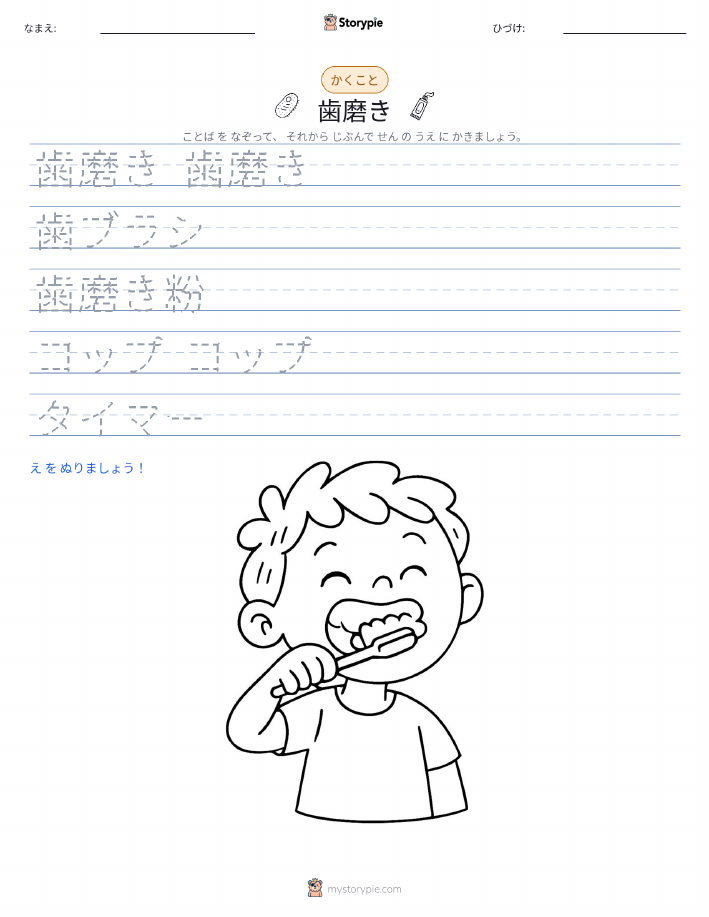 なまえ:
Storypie
ひづけ:
かくこと
歯磨き
ことば を なぞって、 それから じぶんで せん の うえ に かきましょう。
歯磨き 歯磨き
歯ブラシ
歯磨き粉
コップ コップ
タイマー
え を ぬりましょう！
mystorypie.com